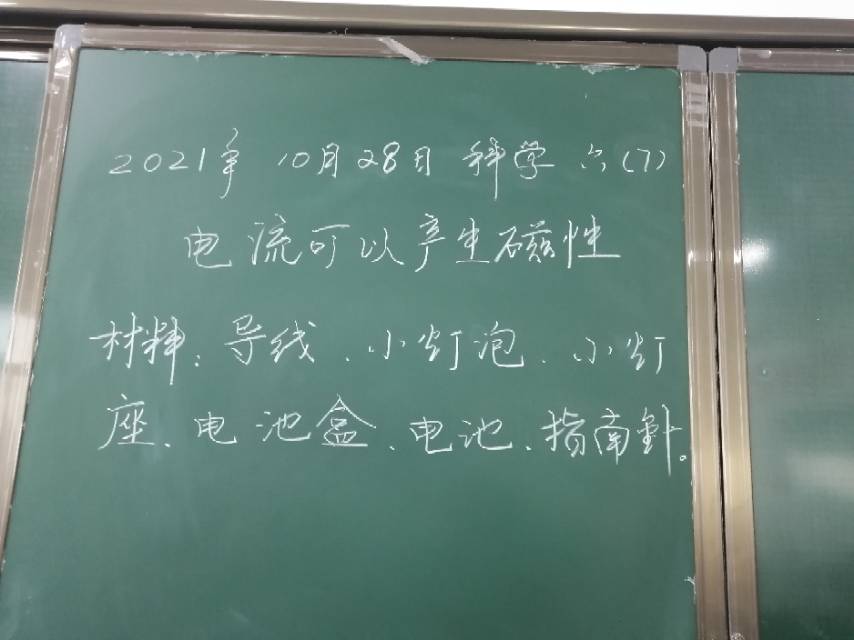 2021年 10月28日 科学 六(7)
电流可以产生磁性
材料：导线、小灯泡、小灯
座、电池盒、电池、指南針。